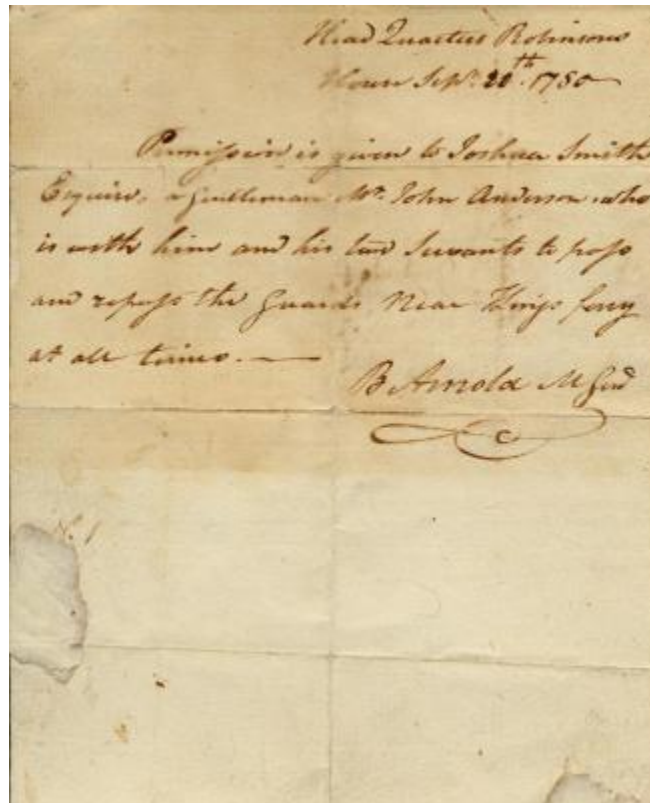 Head Quarters Robinsons
House Sepr. 20th. 1780
Permission is given to Joshua Smith
Esquire, a gentleman Mr. John Anderson who
is with him and his two Servants to pass
and repass the Guards Near Kings ferry
at all times.
B Arnold M Genl
N. 1